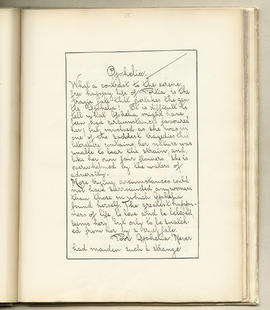 Ophelia.
What a contrast to the serene,
free happy life of Portia is the
tragic fate that befalls the gen-
tle Ophelia! It is difficult to
tell what Ophelia might have
been had circumstances favoured
her; but involved as she was in
one of the saddest tragedies the
literature contains, her nature was
unable to bear the strain, and
like her own four flowers she is
overwhelmed by the waters of
adversity.
More trying circumstances could
not have surrounded any woman
than those in which Ophelia
found herself. The greatest happi-
ness of life to love and be beloved
seems hers, but only to be snatch-
ed from her by a cruel fate.
Poor Ophelia! Never
had maiden such a strange